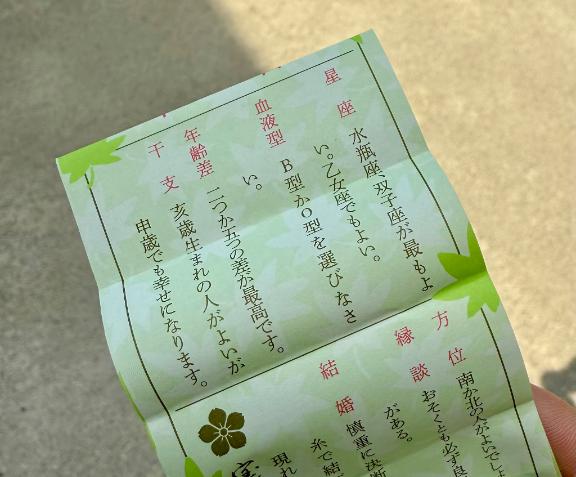 星座 水瓶座、双子座が最もよ
い。乙女座でもよい。
血液型 B型かO型を選びなさ
い。
年齢差 二つか五つの差が最高です。
干支 亥歳生まれの人がよいが
申歳でも幸せになります。
方位 南か北の人がよいでしょ
縁談 おそくとも必ず良
がある。
結婚 慎重に決断
糸で結
現れ